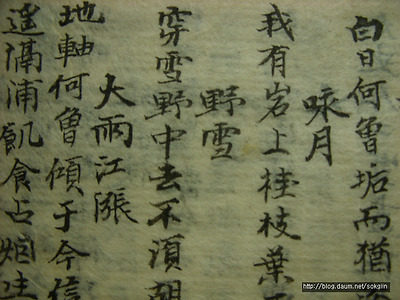 白日何魯垢而猶
咏月
我有岩上桂枝葉
野雪
穿雪野中去不須胡
大雨江漲
地軸何魯傾于今信
遥隔浦飢食占生
http://blog.daum.net/sokgiin